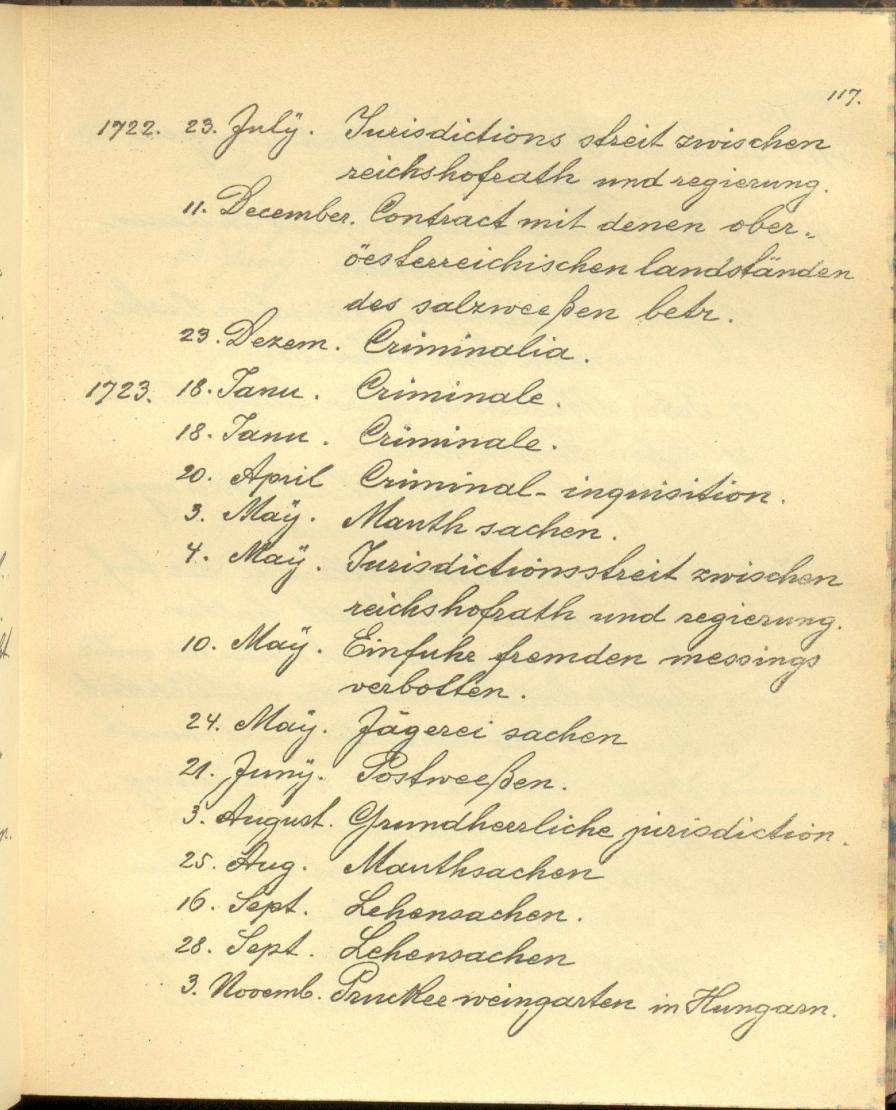 117.
1722. 23. Julÿ. Jurisdictions streit zwischen
reichshofrath und regierung.
11. December. Contract mit denen ober-
öesterreichischen landständen
des salzweeßen betr.
23. Dezem. Criminalia.
1723. 18. Janu. Criminale.
18. Janu. Criminale.
20. April Criminal-inquisition.
3. Maÿ. Mauth sachen.
4. Maÿ. Jurisdictionsstreit zwischen
reichshofrath und regierung.
10. Maÿ. Einfuhr fremden messings
verbotten.
24. Maÿ. Jägerei sachen
21. Junÿ. Postweeßen.
3. August. Grundherrliche jurisdiction.
25. Aug. Mauthsachen
16. Sept. Lehensachen.
28. Sept. Lehensachen
3. Novemb. Prucker weingarten in Hungarn.